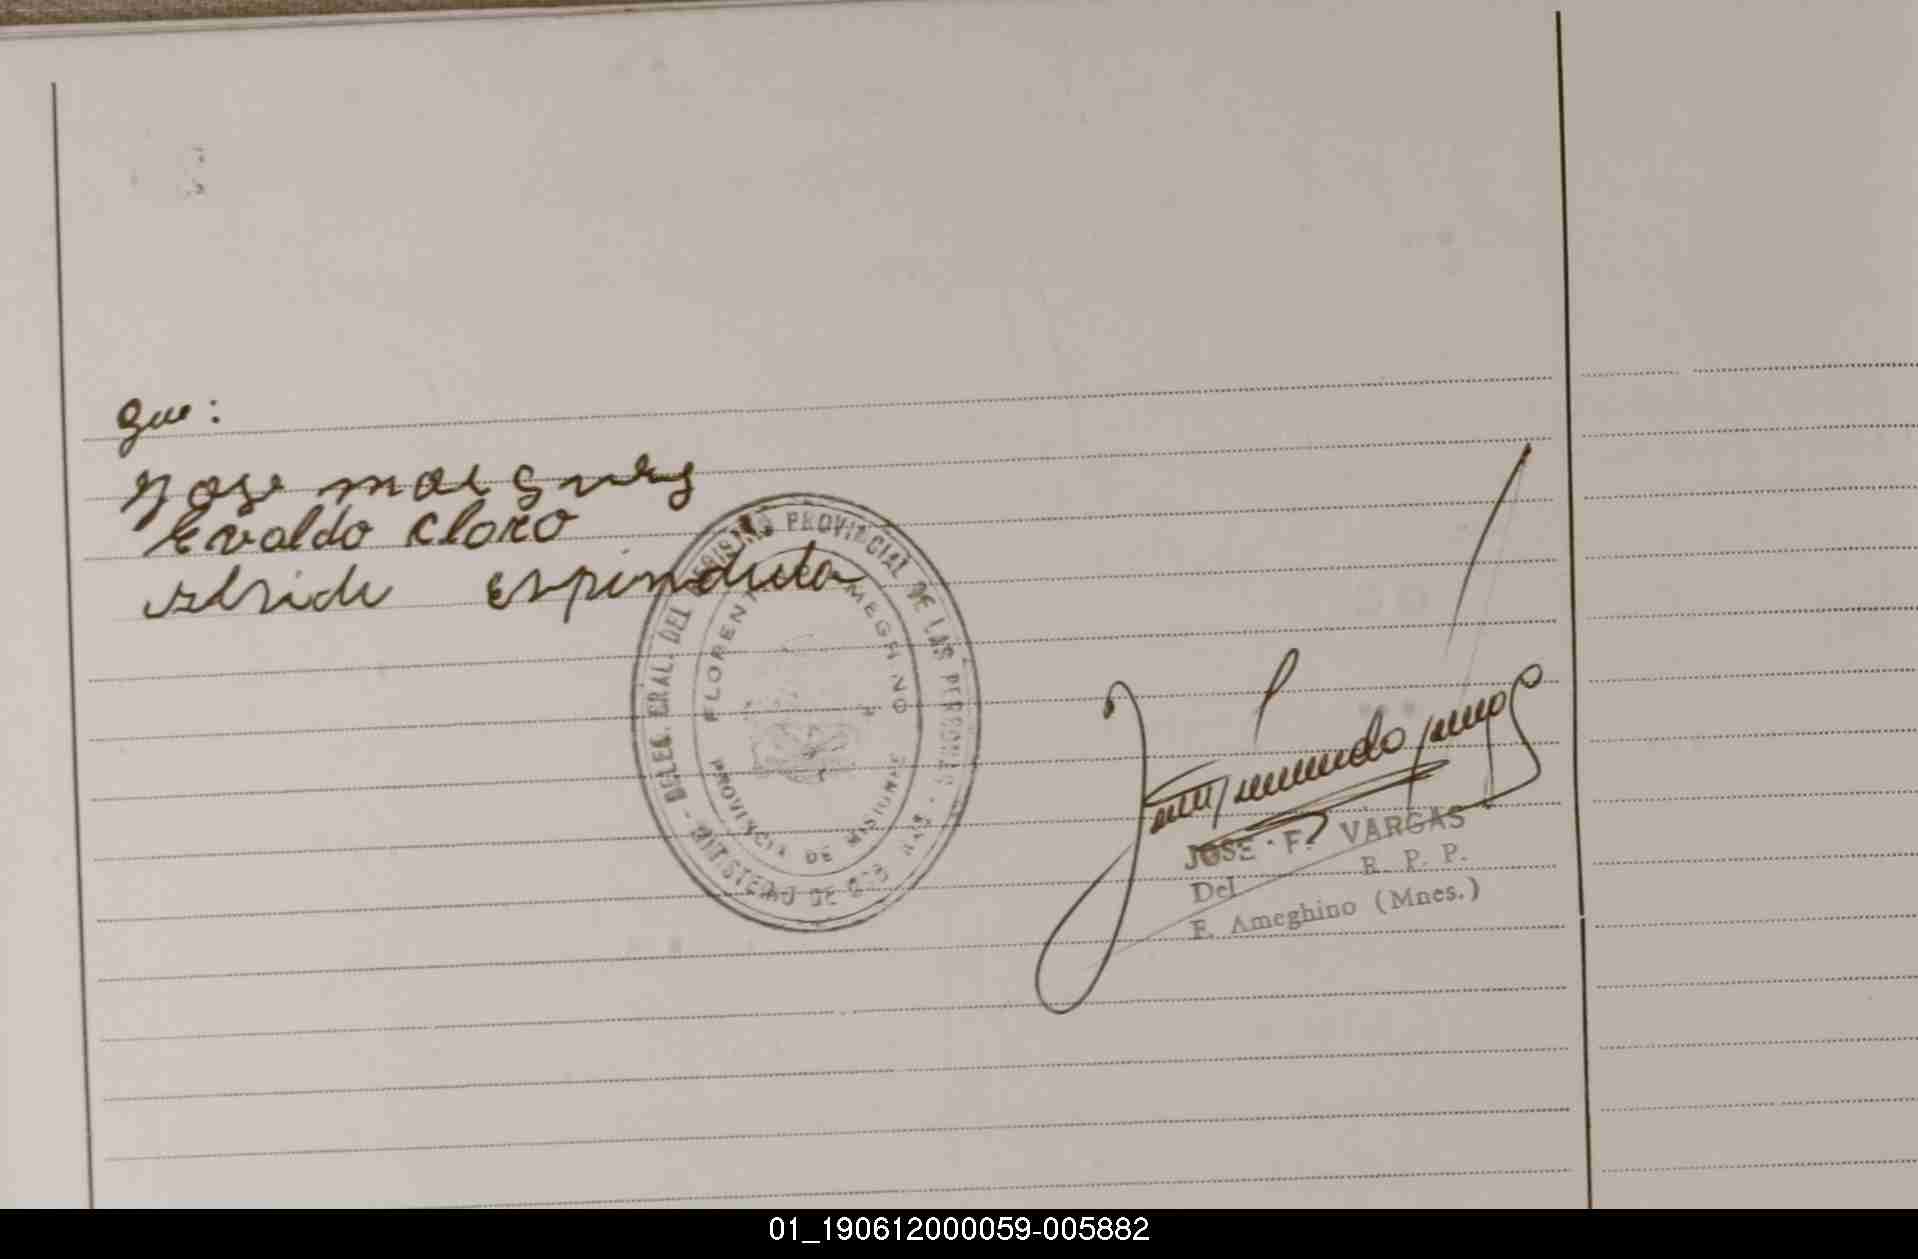 que:
Jose marques
Evaldo Claro
espindula
DELEG. GRAL. DEL REGISTRO PROVINCIAL DE LAS PERSONAS
MINISTERIO DE GOB
FLORENT AMEGHINO
PROVINCIA DE MISIONES
JOSE F. VARGAS
Del R. P. P.
F. Ameghino (Mnes.)
01_190612000059-005882